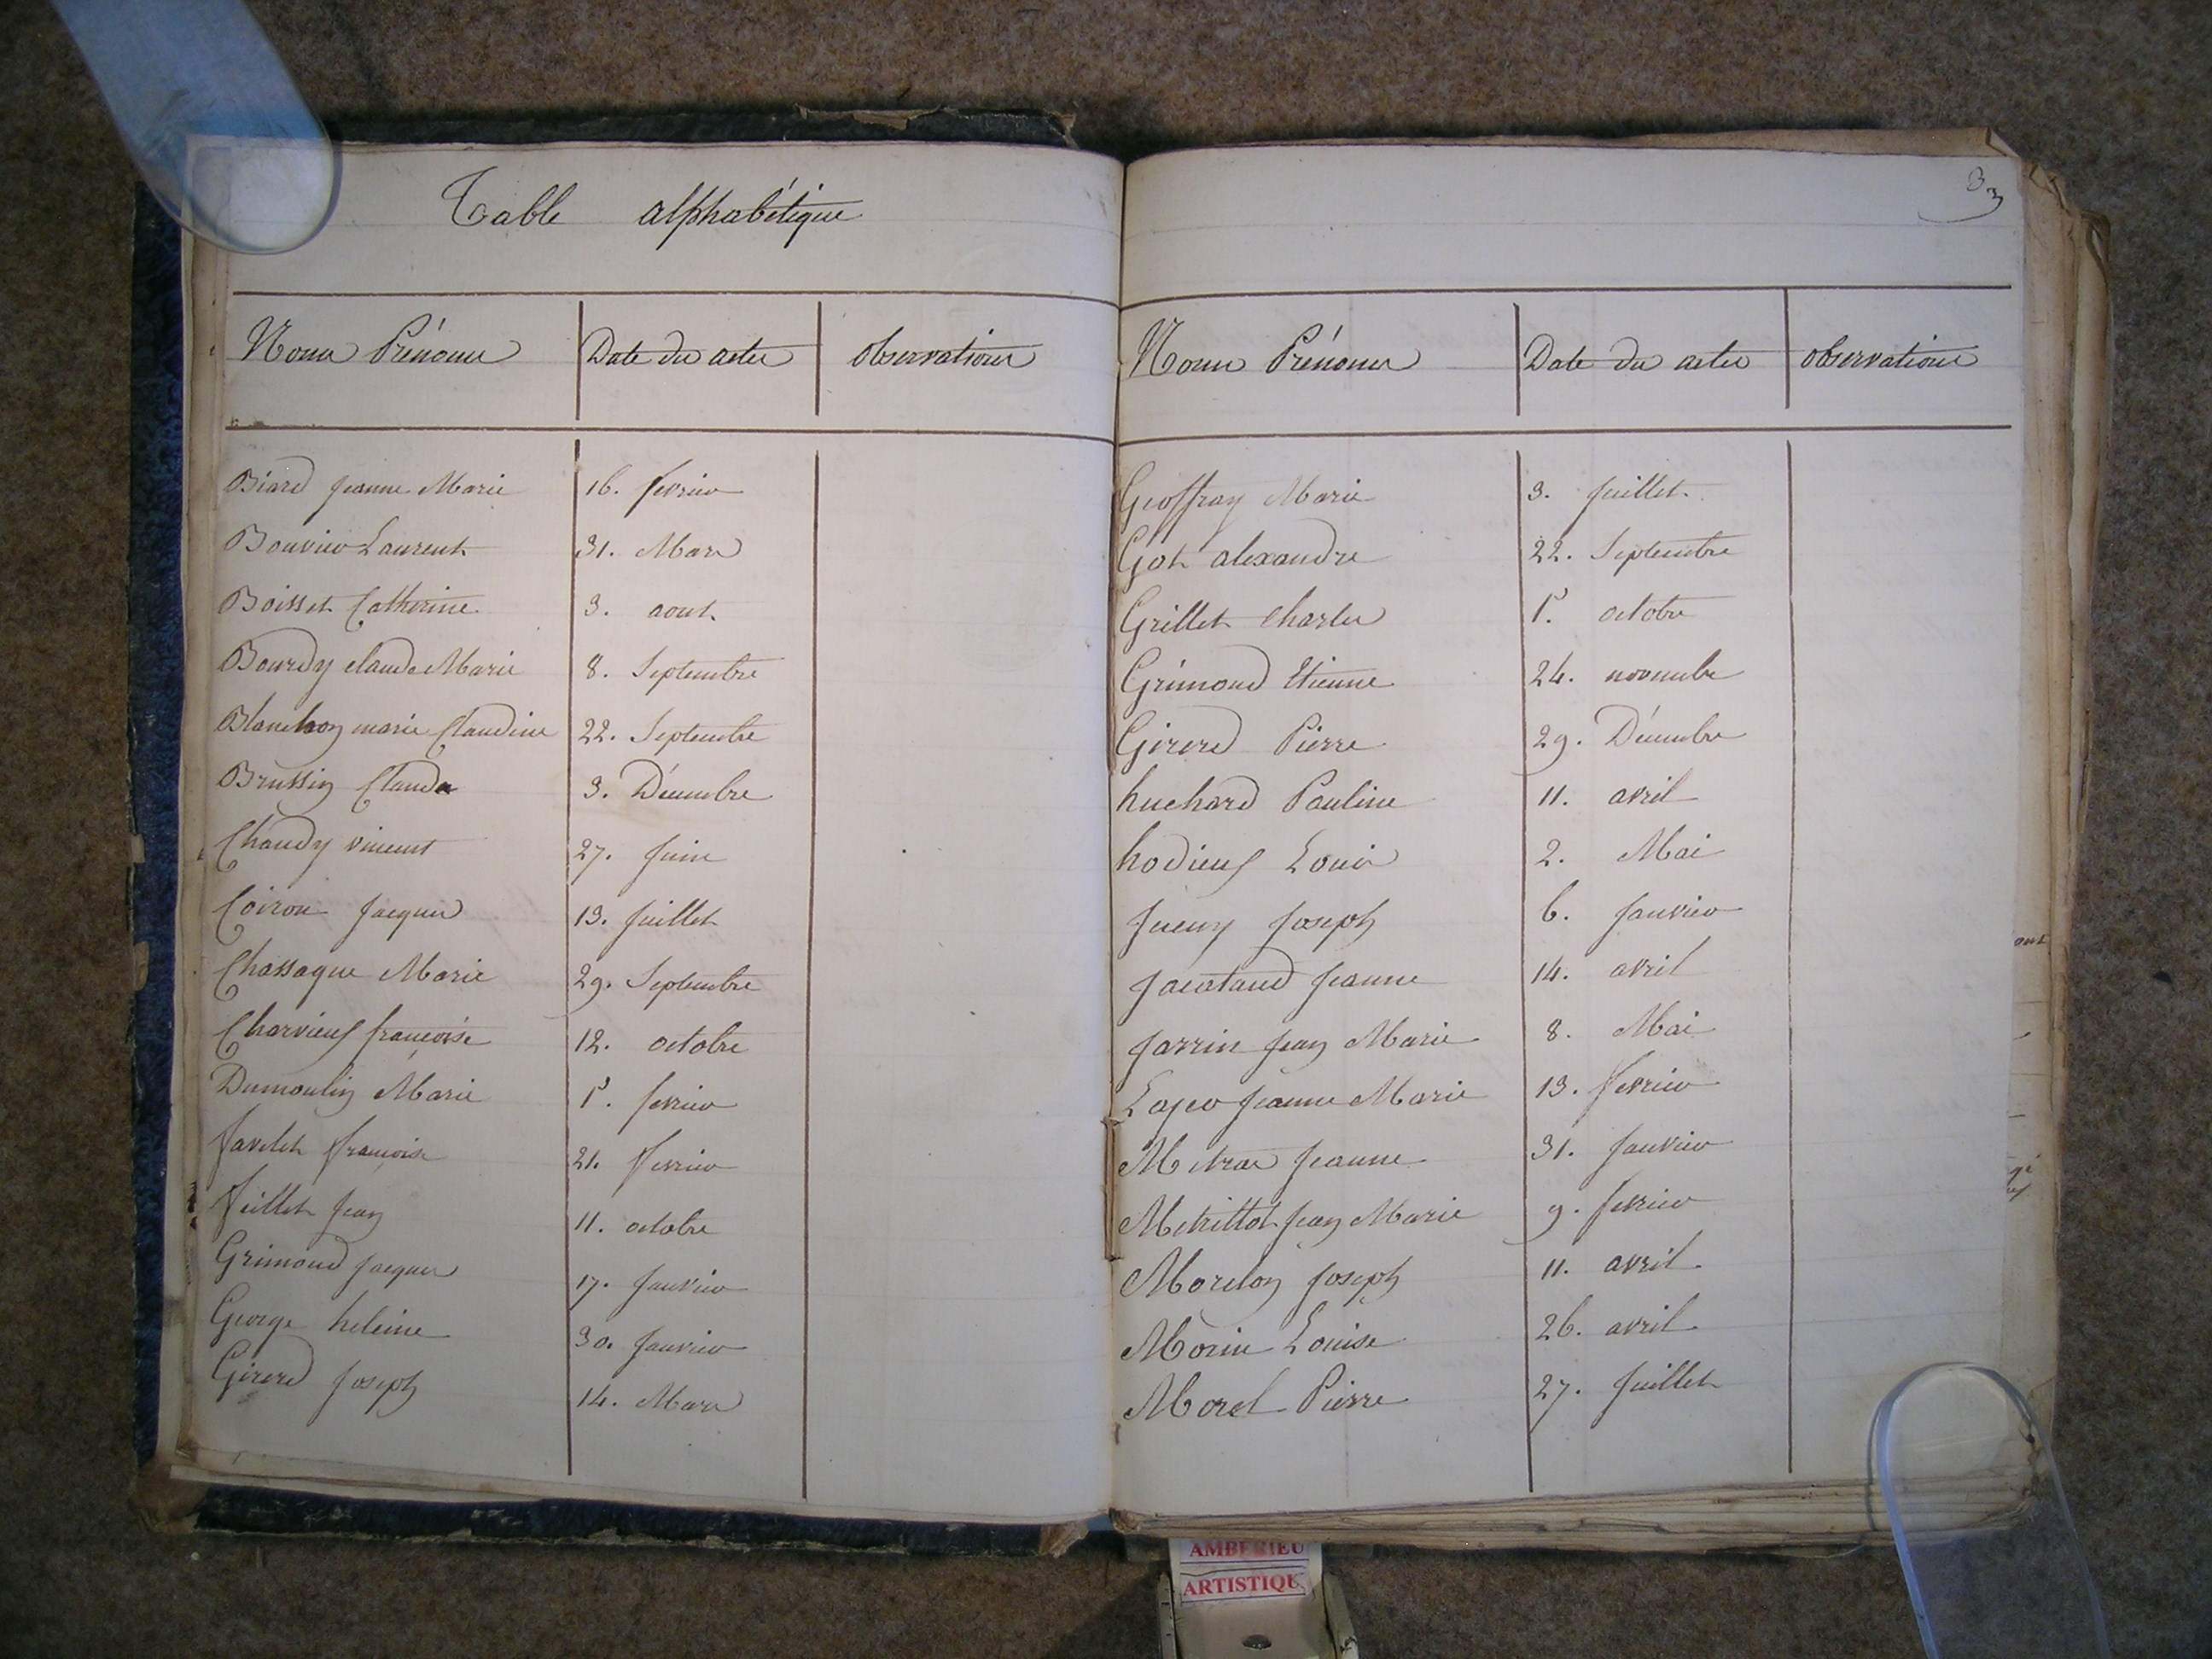 Table alphabétique
Noms Prénoms Date des actes observations
Biard jeanne Marie 16. fevrier
Bouvier Laurent 31. Mars
Boisset Catherine 3. aout
Bourdy claude Marie 8. Septembre
Blanchon marie Claudine 22. Septembre
Brussin Claude 3. Décembre
Chaudy vincent 27. juin
Coiron jacques 13. juillet
Chassagne Marie 29. Septembre
Charvieux francoise 12. octobre
Dumoulin Marie 1er. fevrier
favelet francoise 21. fevrier
feillet jean 11. octobre
Grimoud jacques 17. janvier
George heleine 30. janvier
Girerd joseph 14. Mars
33
Noms Prénoms Date des actes observations
Geoffray Marie 3. juillet
Got alexandre 22. Septembre
Grillet charles 1er. octobre
Grimoud Etienne 24. novembre
Girerd Pierre 29. Décembre
huchard Pauline 11. avril
hodieux Louis 2. Mai
jueny joseph 6. janvier
jacotaud jeanne 14. avril
jarrin jean Marie 8. Mai
jeanne Marie 13. fevrier
Metras jeanne 31. janvier
Metrillot jean Marie 9. fevrier
Morelon joseph 11. avril
Morin Louise 26. avril
Morel Pierre 27. juillet
AMBERIEU
ARTISTIQU